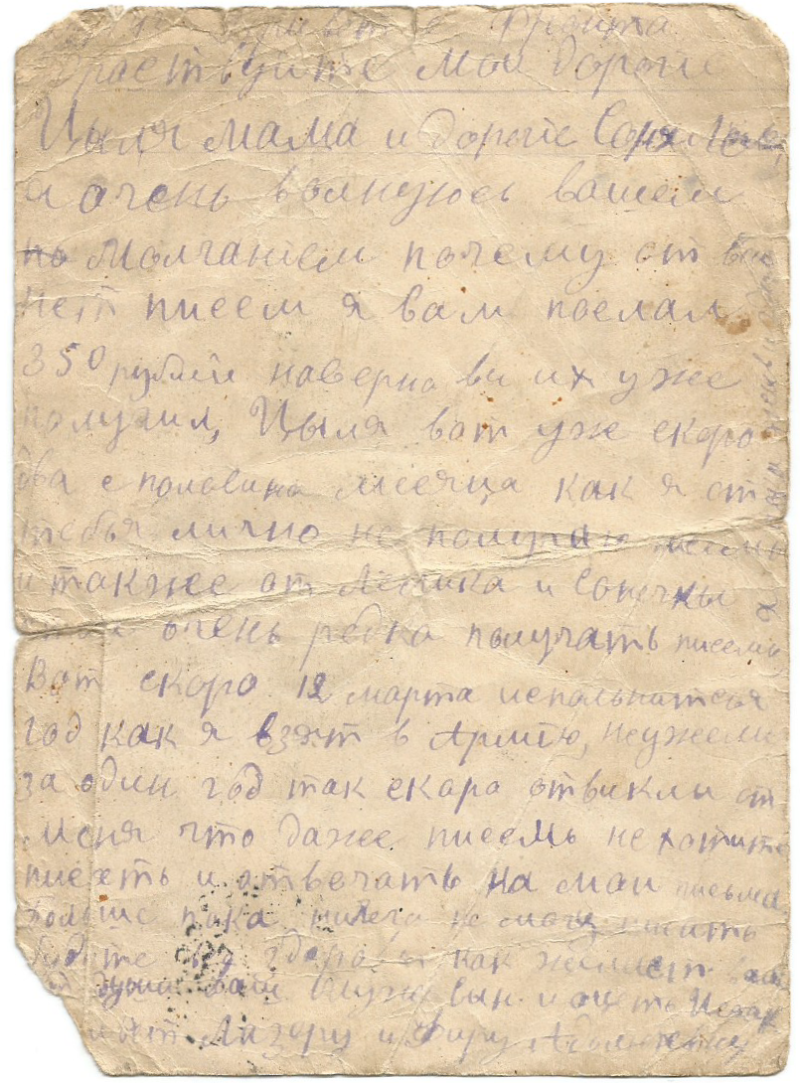 привет с фронта
Здраствуйте мои дорогие
Цыля мама и дорогие Соня
я очень волнуюсь вашем
но молчанием почему от вас
нет писем я вам послал
350 рублей наверно ви их уже
получил, Цыля вот уже скоро
два с половина месяца как я от
тебья лично не получаю
и также от Лёника и Сонечки
очень редка получать писема
Вот скоро 12 марта испольнится
год как я взят в Армию, неужели
за один год так скара отвикли от
меня что даже писемь не хотите
писать и отвечать на маи письма
больше пока ничего не магу писать
будьте здорови как желает вам
ваш муж сын и отец
Лазару и Фиру